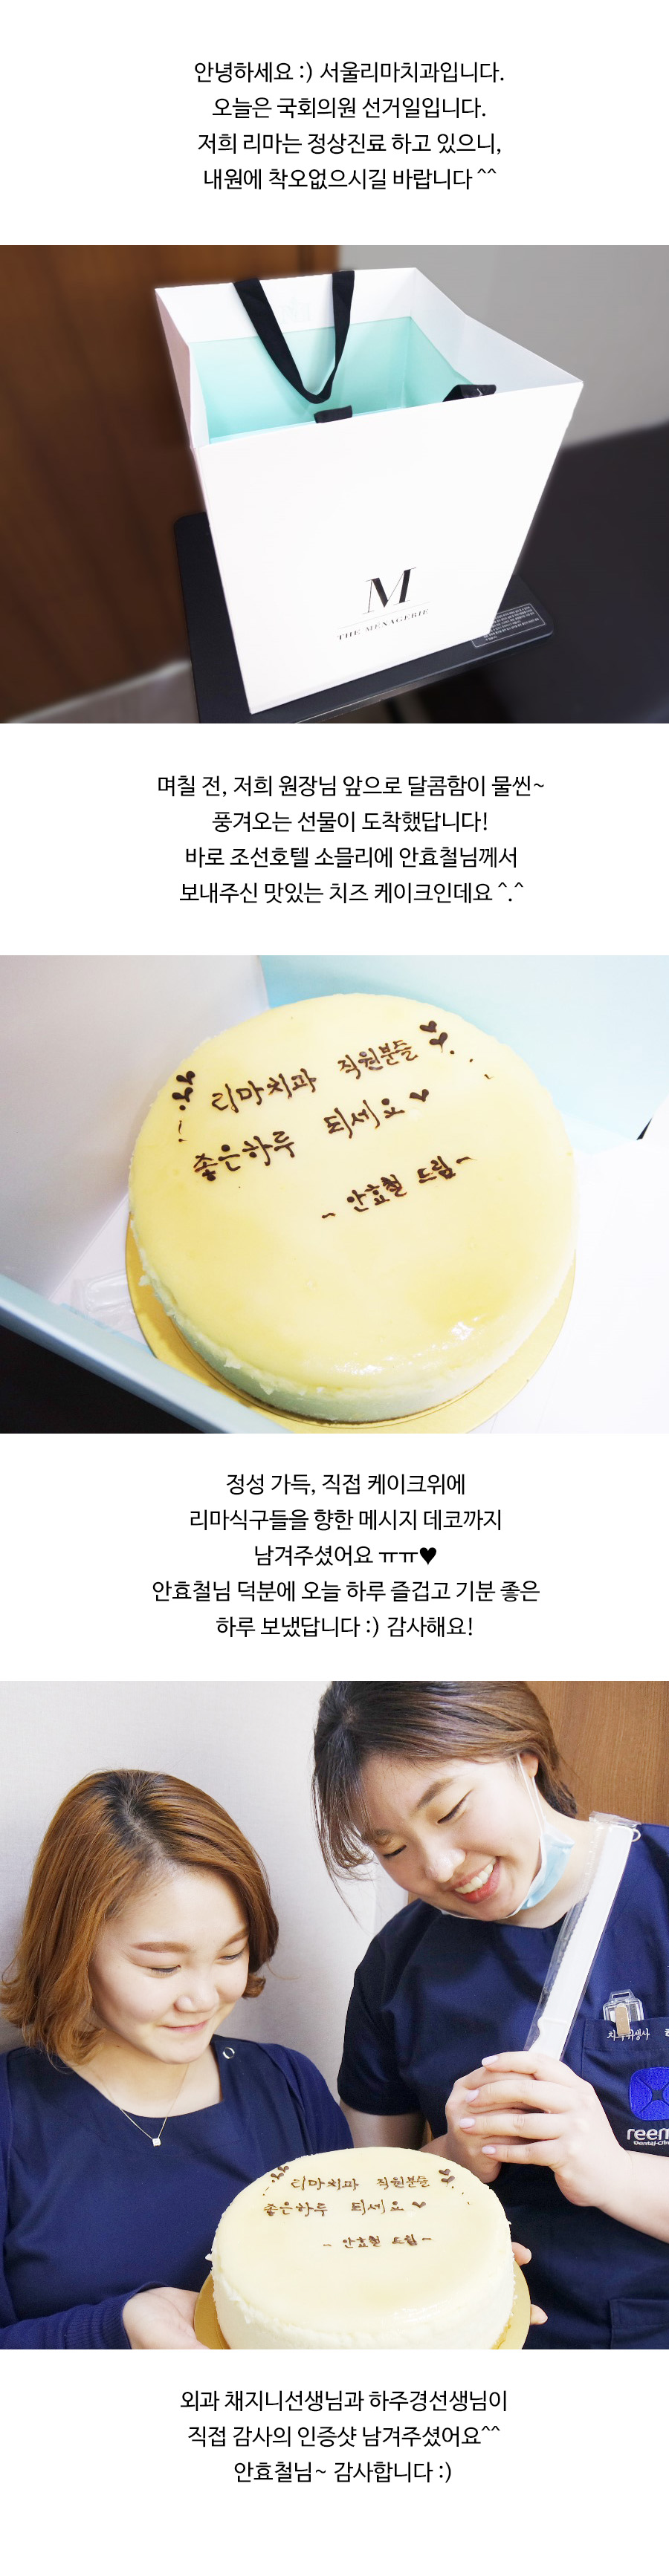 안녕하세요 :) 서울리마치과입니다.
오늘은 국회의원 선거일입니다.
저희 리마는 정상진료 하고 있으니,
내원에 착오없으시길 바랍니다 ^^
M
THE MENAGERIE
며칠 전, 저희 원장님 앞으로 달콤함이 물씬~
풍겨오는 선물이 도착했답니다!
바로 조선호텔 소믈리에 안효철님께서
보내주신 맛있는 치즈 케이크인데요 ^.^
리마치과 직원분들
좋은하루 되세요♥
~ 안효철 드림~
정성 가득, 직접 케이크위에
리마식구들을 향한 메시지 데코까지
남겨주셨어요 ㅠㅠ♥
안효철님 덕분에 오늘 하루 즐겁고 기분 좋은
하루 보냈답니다 :) 감사해요!
치과위생사
reem
Dental Clin
리마치과 직원분들
좋은하루 되세요♥
~ 안효철 드림~
외과 채지니선생님과 하주경선생님이
직접 감사의 인증샷 남겨주셨어요^^
안효철님~ 감사합니다 :)